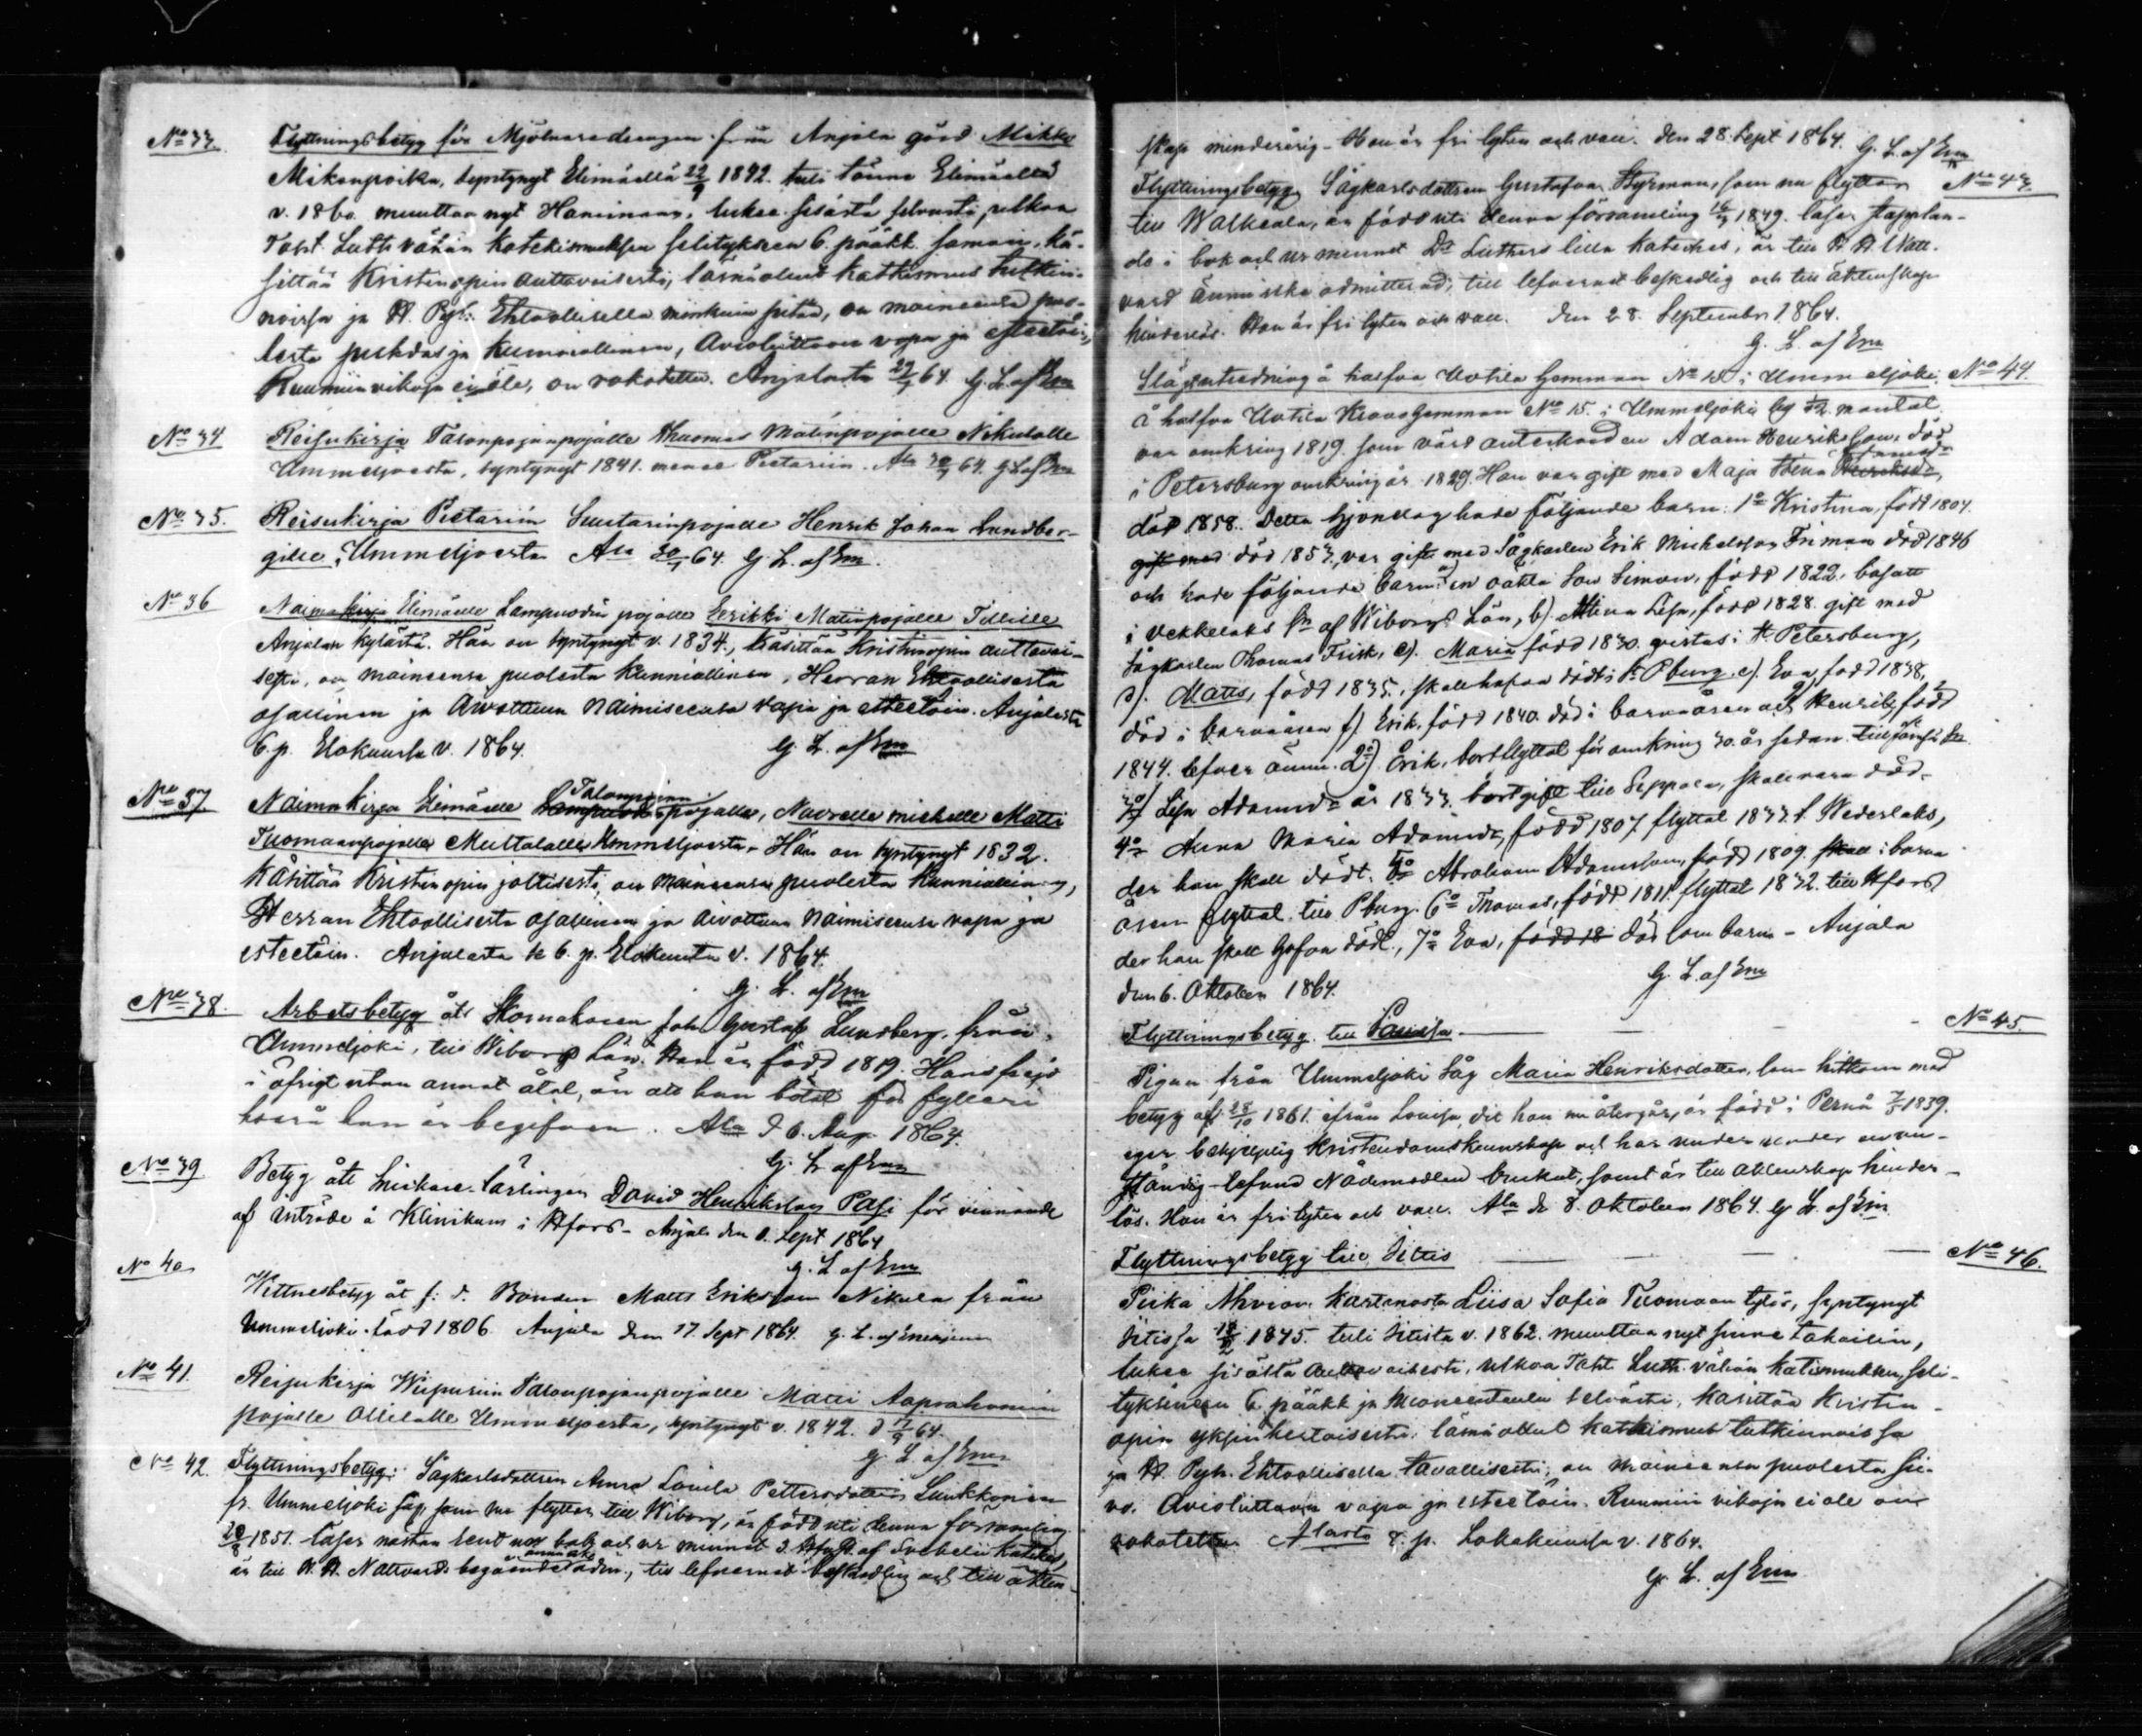 No 33. Flyttningsbetyg för Mjölnaredrengen från Anjala gård Mikko
Mikonpoika, syntynyt Elimäellä 22/9 1842. tuli tänne Elimäeltä
v. 1860. muuttaa nyt Haminaan, lukee sisästä selvästi, ulkoa
Toht. Luth. vähän Katekismuksen selityksen 6. pääkk. samoin, kä-
sittää Kristinopin auttavaisesti, läsnäollut Katkismus tutkin-
noissa ja H. Pyh. Ehtoollisella, on maineensa puo-
lesta puhdas ja kunniallinen, Avioliittoon vapa ja esteetöin,
Ruumiin vikoja ei ole, on rokotettu. Anjalasta 64. G. L. af Em
No 34 Reisukirja Talonpojanpojalle Thuomas Matinpojalle Nikulalle
Ummeljoesta, syntynyt 1841. menee Pietariin. Ala 64. G L af Em
No 35. Reisukirja Pietariin Suutarinpojalle Henrik Johan Lundber-
gille, Ummeljoesta Ala 64. G. L. af Em.
No 36 Naimakirja Elimäelle Lampuodin pojalle Eerikki Matinpojalle Tillille
Anjalan kylästä. Hän on syntynyt v. 1834., käsittää Kristinopin auttavai-
sesti, on maineensa puolesta kunniallinen, Herran Ehtoollisesta
osallinen ja Aviottuun Naimiseensa vapa ja esteetöin. Anjalasta
6. p. Elokuussa v. 1864. G. L. af Em
No 37 Naimakirja Elimäelle Talonpojan pojalle, Nuorelle miehelle Matti
Tuomaanpojalle Muttalalle Ummeljoesta. Hän on syntynyt 1832.
Käsittää Kristinopin jottisesti, on maineensa puolesta kunniallinen,
Herran Ehtoollisesta osallinen ja aviottuun Naimiseensa vapa ja
esteetöin. Anjalasta se 6. p. Elokuuta v. 1864.
G. L. af Em
No 38. Arbetsbetyg åt Skomakaren Joh. Gustaf Lundberg, från
Ummeljoki, till Wiborgs Län. Han är född 1819. Hans frejd
i öfrigt utan annat åtal, än att han bötat för fylleri
hvarå han är begifven. Ala d 6. Aug. 1864.
G. L af Em
No 39 Betyg åt Snickare-lärlingen David Henriksson Pasi för vinnande
af inträde å Klinikum i Hfors - Anjala den 1. Sept 1864
G. L af Em
No 40 Wittnesbetyg åt f. d. Bonden Matts Eriksson Nikula från
Ummeljoki. född 1806. Anjala den 17. Sept 1864. G. L. af
No 41. Reisukirja Wiipuriin Talonpojanpojalle Matti Aaprahamin
pojalle Ollilalle Ummeljoesta, syntynyt v. 1842. d 17/9 64.
G. L af Em
No 42. Flyttningsbetyg: Sågkarlsdottren Anna Lovisa Pettersdotter Luukkonen
fr. Ummeljoki såg som nu flyttar till Wiborg, är född uti denna församling
1851. läser nästan rent ur bok och ur minnet af Svebelii Kateches,
är till H. H. Nattvards begående, till lefvernet beskedlig och till äkten-
skap minderårig - Hon är fri lyten och vacc. den 28. Sept 1864. G. L. af Em
Flyttningsbetyg Sågkarlsdottren Gustafva Styrman, som nu flyttar No 43.
till Walkeala, är född uti denna församling 1849. läser stapplan-
de i bok och ur minnet Dr Luthers lilla Kateches, är till H. H. Natt-
vard ännu icke admitterad, till lefvernet beskedlig och till äktenskap
hinderlös. Hon är fri lyten och vacc. Den 28. September 1864.
G. L. af Em
Slägtutredning å halfva Uotila hemman No i Ummeljoki. No 44.
Å halfva Uotila Kronohemman No 15. i Ummeljoki by mantal
var omkring 1819. som värd antecknad en Adam Henriksson, död
i Petersburg omkring år 1829. Han var gift med Maja
död 1858. Detta hjonelag hade följande barn: 1o Kristina, född 1804.
gift med död 1853, var gift med Sågkarlen Erik Michelsson Friman död 1846
och hade följande barn: a) en oäkta son Simon, född 1822, bosatt
i Vekkelaks Sn af Wiborgs Län, b). Lisa, född 1828. gift med
sågkarlen Thomas Frisk, c). Maria född 1830. vistas i St Petersburg,
d). Matts, född 1835., skall hafva dödt i St Pburg. e). Eva, född 1838,
död i barnaåren f). Erik, född 1840. död i barnaåren och g) Henrik, född
1844. lefver ännu. 2o). Erik, bortflyttat för omkring 30. år sedan
3o) Lisa Adamsdr år 1833. bortgift till Sippola, skall vara död.
4o Anna Maria Adamsdr, född 1807. flyttat 1833. t. Wederlaks,
der hon skall dödt. 5o Abraham Adamsson, född 1809. skall i barna
åren flyttat till Pburg. 6o Thomas, född 1811. flyttat 1832. till Hfors
der han skall hafva dödt., 7o Eva, född 18 död som barn - Anjala
den 6. Oktober 1864. G. L. af Em
Flyttningsbetyg till Lovisa No 45.
Pigan från Ummeljoki Såg Maria Henriksdotter, som hitkom med
betyg af 28/10 1861. ifrån Lovisa, dit hon nu återgår, är född i Pernå 1839.
eger behjelplig Kristendomskunskap och har under
ständig lefvnad Nådemedlen brukat, samt är till äktenskap hinder-
lös. Hon är fri lyten och vacc. Ala d. 8. Oktober 1864. G. L. af Em
Flyttningsbetyg till Ittis No 46.
Piika Ahvion kartanosta Liisa Sofia Tuomaan tytär, syntynyt
Iitissä 1845. tuli Iitistä v. 1862. muuttaa nyt sinne takaisin,
lukee sisältä auttavaisesti, ulkoa Toht. Luth. vähän katismuksen seli-
tyksineen 6. pääkk ja Huoneentaulu selvästi, käsittää Kristin-
opin yksinkertaisesti, läsnä ollut katkismus tutkinnoissa
ja H. Pyh. Ehtoollisella tavallisesti, on maineensa puolesta sii-
vo. Avioliittoon vapa ja esteetöin. Ruumiin vikoja ei ole on
rokotettu. Alasta 8. p. Lokakuussa v. 1864.
G. L. af Em